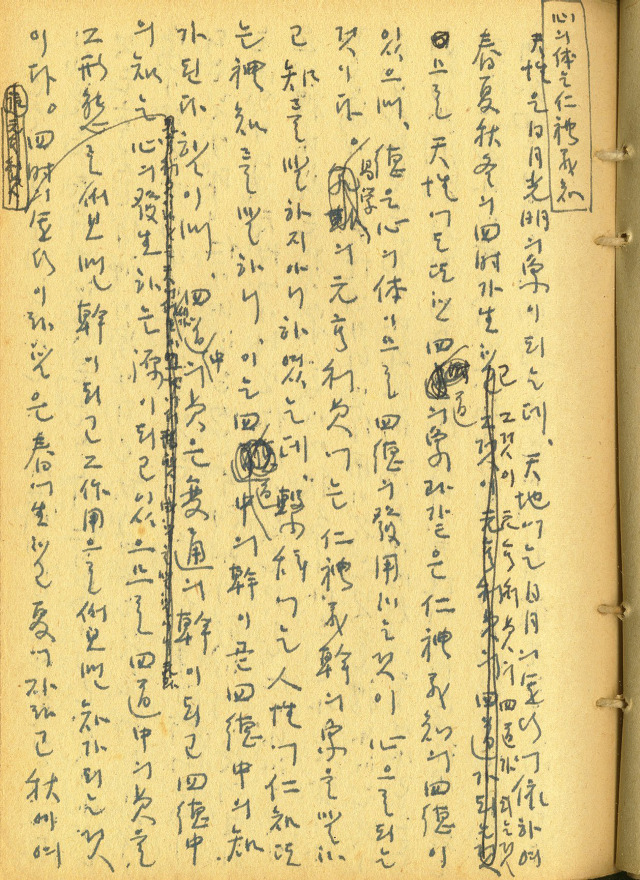 心의体는仁禮義知
天性은日月光明의象이되는데, 天地에는日月의運行에依하여
春夏秋冬의四時가生하고 그것이元亨利貞의四道가되는것
으로 天性에도또한四道의象과같은仁禮義知의四德이
있으며, 德은心의体이므로 四德의發用하는것이 心으로되는
것이다。易学의元亨利貞에는 仁禮義幹의象을말하
고 知를말하지아니하였는데, 繫辭에는人性에仁知또
는禮知를말하니, 이는四道中의幹이곧四德中의知
가된다함이며, 四道中의貞은變通의幹이되고四德中
의知는心의發生하는源이되고있으므로 四道中의貞을
그形態로써보면幹이되고그作用으로써보면知가되는것
이다。四時運行이라함은春에生하고夏에자라고秋에여